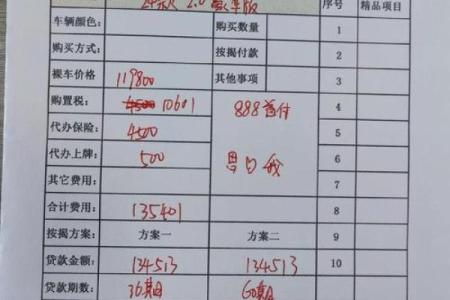 24款 2.0 豪华版 序号 精品项目
车辆颜色： 购买数量 1
购买方式： 按揭付款 2
裸车价格 119800 其他事项 3
购置税： 4500 10601 888首付 4
代办保险： 4500 5
代办上牌： 500 6
其它费用： 7
合计费用： 135401 8
按揭方案： 方案一 方案二 9
贷款金额： 134513 134513 10
贷款期数： 36期 60期